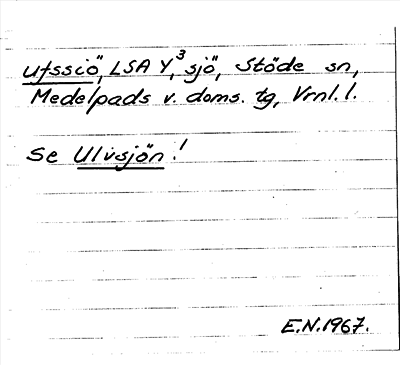 ufssiö, LSA Y,³ sjö, Stöde sn,
Medelpads v. doms. tg, Vrnl. l.
Se Ulvsjön!
E.N. 1967.